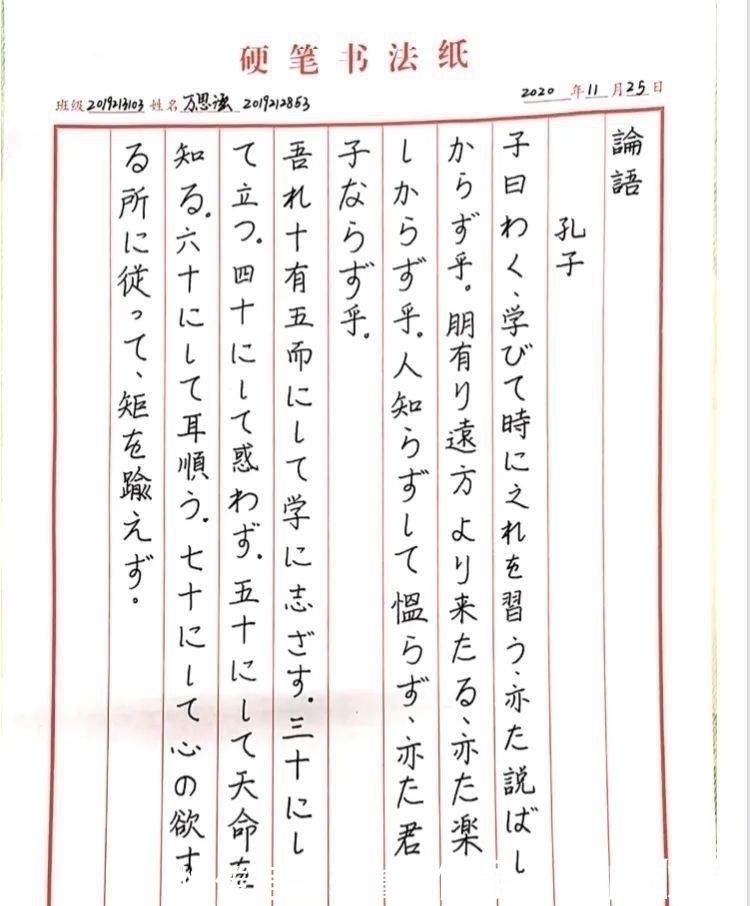 硬笔书法纸
班级2019213103 姓名万思谳 2019212853 2020年11月25日
論語
孔子
子曰わく、学びて時に之れを習う、亦た説ばし
からず乎。朋有り遠方より来たる、亦た楽
しからず乎。人知らずして慍らず、亦た君
子ならず乎。
吾れ十有五而にして学に志ざす。三十にし
て立つ。四十にして惑わず。五十にして天命を
知る。六十にして耳順う。七十にして心の欲す
る所に従って、矩を踰えず。